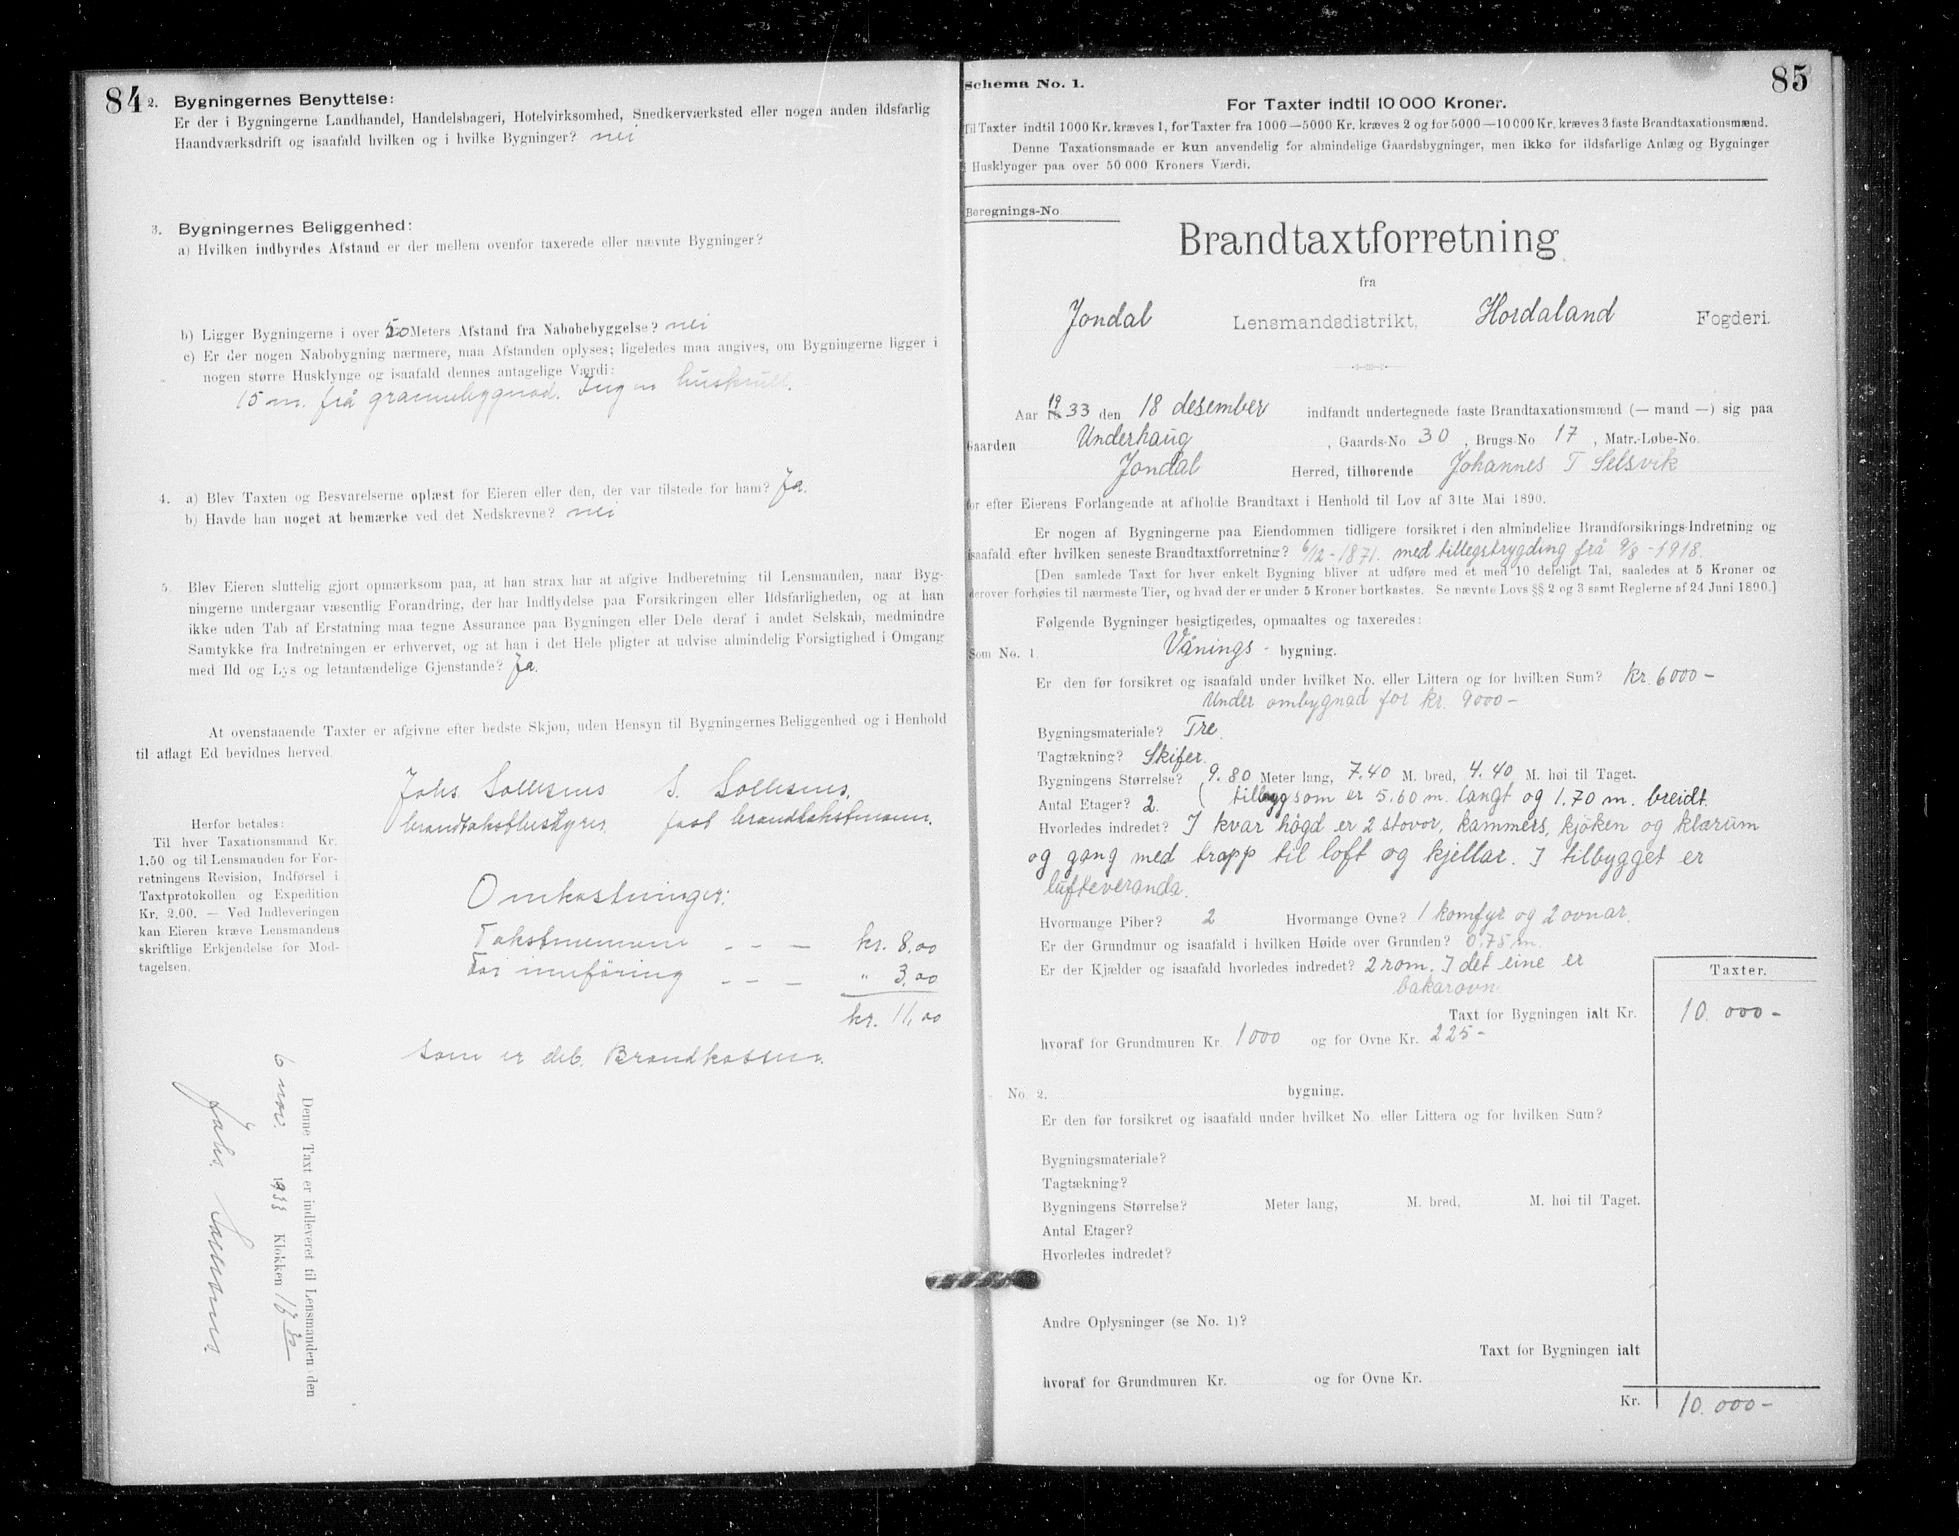 84
2. Bygningernes Benyttelse:
Er der i Bygningerne Landhandel, Handelsbageri, Hotelvirksomhed, Snedkerværksted eller nogen anden ildsfarlig
Haandværksdrift og isaafald hvilken og i hvilke Bygninger? nei
3. Bygningernes Beliggenhed:
a) Hvilken indbyrdes Afstand er der mellem ovenfor taxerede eller nævnte Bygninger?
b) Ligger Bygningerne i over 50 Meters Afstand fra Nabobebyggelse? nei
c) Er der nogen Nabobygning nærmere, maa Afstanden oplyses; ligeledes maa angives, om Bygningerne ligger i
nogen større Husklynge og isaafald dennes antagelige Værdi:
15 m. frå grannebygnad. Ingen huskrull.
4. a) Blev Taxten og Besvarelserne oplæst for Eieren eller den, der var tilstede for ham? Ja.
b) Havde han noget at bemærke ved det Nedskrevne? nei
5. Blev Eieren sluttelig gjort opmærksom paa, at han strax har at afgive Indberetning til Lensmanden, naar Byg-
ningerne undergaar væsentlig Forandring, der har Indflydelse paa Forsikringen eller Ildsfarligheden, og at han
ikke uden Tab af Erstatning maa tegne Assurance paa Bygningen eller Dele deraf i andet Selskab, medmindre
Samtykke fra Indretningen er erhvervet, og at han i det Hele pligter at udvise almindelig Forsigtighed i Omgang
med Ild og Lys og letantændelige Gjenstande? Ja.
At ovenstaaende Taxter er afgivne efter bedste Skjøn, uden Hensyn til Bygningernes Beliggenhed og i Henhold
til aflagt Ed bevidnes herved.
Johs. Sollesnes S. Sollesnes.
brandtakstbestyrer fast brandtakstmann.
Herfor betales:
Til hver Taxationsmand Kr.
1,50 og til Lensmanden for For-
retningens Revision, Indførsel i
Taxtprotokollen og Expedition
Kr. 2.00. — Ved Indleveringen
kan Eieren kræve Lensmandens
skriftlige Erkjendelse for Mod-
tagelsen.
Omkostninger:
Takstmennene - - - kr. 8,00
For innføring - - - " 3,00
kr. 11,00
som er deb. Brandkassen.
Denne Taxt er indleveret til Lensmanden den
6 nov. 1933 Klokken 17 30
Johs. Sollesnes.
85
Schema No. 1.
For Taxter indtil 10 000 Kroner.
Til Taxter indtil 1000 Kr. kræves 1, for Taxter fra 1000—5000 Kr. kræves 2 og for 5000—10 000 Kr. kræves 3 faste Brandtaxationsmænd.
Denne Taxationsmaade er kun anvendelig for almindelige Gaardsbygninger, men ikke for ildsfarlige Anlæg og Bygninger
i Husklynger paa over 50 000 Kroners Værdi.
Beregnings-No
Brandtaxtforretning
fra
Jondal Lensmandsdistrikt, Hordaland Fogderi.
Aar 1933 den 18 desember indfandt undertegnede faste Brandtaxationsmænd (— mand —) sig paa
Gaarden Underhaug, Gaards-No 30, Brugs-No 17, Matr.-Løbe-No.
Jondal Herred, tilhørende Johannes T Selsvik
for efter Eierens Forlangende at afholde Brandtaxt i Henhold til Lov af 31te Mai 1890.
Er nogen af Bygningerne paa Eiendommen tidligere forsikret i den almindelige Brandforsikrings-Indretning og
isaafald efter hvilken seneste Brandtaxtforretning? 6/12-1871. med tillegstrygding frå 9/8-1918.
[Den samlede Taxt for hver enkelt Bygning bliver at udføre med et med 10 deleligt Tal, saaledes at 5 Kroner og
derover forhøies til nærmeste Tier, og hvad der er under 5 Kroner bortkastes. Se nævnte Lovs §§ 2 og 3 samt Reglerne af 24 Juni 1890.]
Følgende Bygninger besigtigedes, opmaaltes og taxeredes:
Som No. 1. Vånings - bygning.
Er den før forsikret og isaafald under hvilket No. eller Littera og for hvilken Sum? Kr. 6000-
Under ombygnad for kr. 9000-
Bygningsmateriale? Tre.
Tagtækning? Skifer.
Bygningens Størrelse? 9.80 Meter lang, 7.40 M. bred, 4.40 M. høi til Taget.
Antal Etager? 2. tilbygg som er 5.60 m. langt og 1.70 m. breidt.
Hvorledes indredet? I kvar høgd er 2 stovor, kammers, kjøken og klærum
og gang med trapp til loft og kjellar. I tilbygget er
lufteveranda.
Hvormange Piber? 2 Hvormange Ovne? 1 komfyr og 2 ovnar.
Er der Grundmur og isaafald i hvilken Høide over Grunden? 0.75 m.
Er der Kjælder og isaafald hvorledes indredet? 2 rom. I det eine er
bakarovn.
Taxter.
Taxt for Bygningen ialt Kr. 10.000-
hvoraf for Grundmuren Kr. 1000 og for Ovne Kr. 225-
No. 2. bygning.
Er den før forsikret og isaafald under hvilket No. eller Littera og for hvilken Sum?
Bygningsmateriale?
Tagtækning?
Bygningens Størrelse? Meter lang, M. bred, M. høi til Taget.
Antal Etager?
Hvorledes indredet?
Andre Oplysninger (se No. 1)?
Taxt for Bygningen ialt
hvoraf for Grundmuren Kr. og for Ovne Kr.
Kr. 10.000-